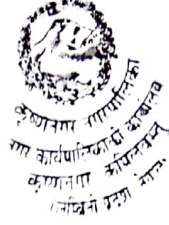 कृष्णनगर नगरपालिका
नगर कार्यपालिकाको कार्यालय
कृष्णनगर कपिलवस्तु
लुम्बिनी प्रदेश नेपाल